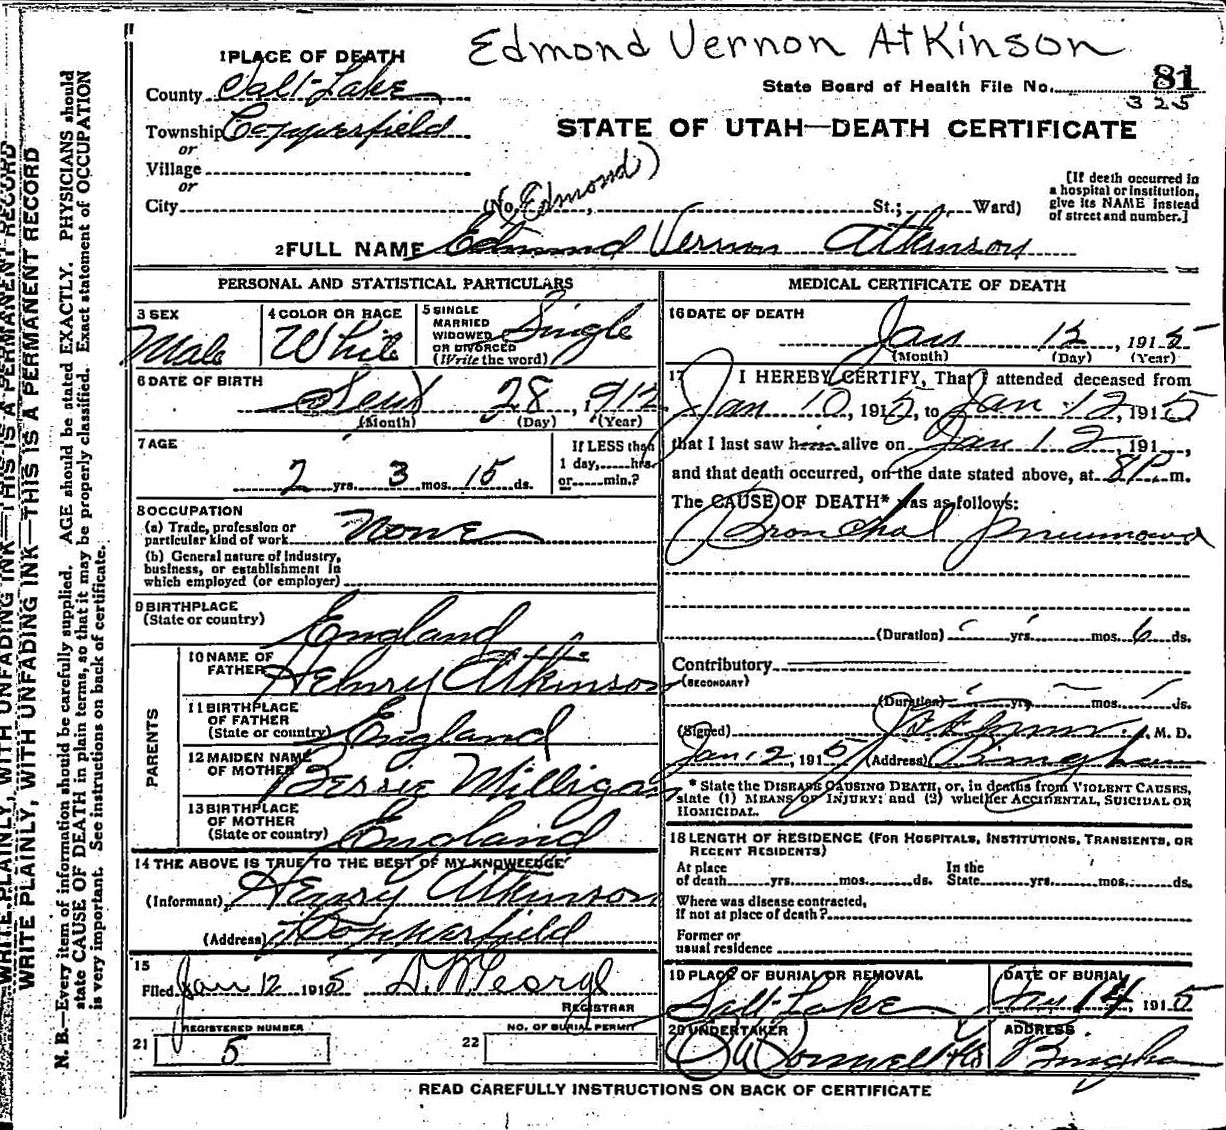 Edmond Vernon Atkinson
1 PLACE OF DEATH
County Salt Lake
State Board of Health File No. 81
325
Township Copperfield
or
STATE OF UTAH—DEATH CERTIFICATE
Village
or
City (No. Edmond) St.; Ward)
[If death occurred in
a hospital or institution,
give its NAME instead
of street and number.]
2 FULL NAME Edmund Vernon Atkinson
PERSONAL AND STATISTICAL PARTICULARS
3 SEX
Male
4 COLOR OR RACE
White
5 SINGLE
MARRIED
WIDOWED
OR DIVORCED
(Write the word)
Single
6 DATE OF BIRTH
28, 1912
(Month) (Day) (Year)
7 AGE
2 yrs. 3 mos. 15 ds.
If LESS than
1 day, hrs.
or min.?
8 OCCUPATION
(a) Trade, profession or
particular kind of work None
(b) General nature of industry,
business, or establishment in
which employed (or employer)
9 BIRTHPLACE
(State or country)
England
PARENTS
10 NAME OF
FATHER Henry Atkinson
11 BIRTHPLACE
OF FATHER
(State or country) England
12 MAIDEN NAME
OF MOTHER Bessie Milligan
13 BIRTHPLACE
OF MOTHER
(State or country) England
14 THE ABOVE IS TRUE TO THE BEST OF MY KNOWLEDGE
(Informant) Henry Atkinson
(Address) Copperfield
15
Filed Jan 12 1915
REGISTRAR
REGISTERED NUMBER
21 5
NO. OF BURIAL PERMIT
22
MEDICAL CERTIFICATE OF DEATH
16 DATE OF DEATH
Jan 12, 1915
(Month) (Day) (Year)
17 I HEREBY CERTIFY, That I attended deceased from
Jan 10, 1915, to Jan 12, 1915
that I last saw him alive on Jan 12, 191
and that death occurred, on the date stated above, at 8 P. m.
The CAUSE OF DEATH* was as follows:
Bronchal pneumonia
(Duration) yrs. mos. 6 ds.
Contributory
(SECONDARY)
(Duration) yrs. mos. ds.
(Signed) M. D.
Jan 12, 1915 (Address) Bingham
* State the DISEASE CAUSING DEATH, or, in deaths from VIOLENT CAUSES,
state (1) MEANS OF INJURY; and (2) whether ACCIDENTAL, SUICIDAL OR
HOMICIDAL.
18 LENGTH OF RESIDENCE (FOR HOSPITALS, INSTITUTIONS, TRANSIENTS, OR
RECENT RESIDENTS)
At place
of death yrs. mos. ds.
In the
State yrs. mos. ds.
Where was disease contracted,
if not at place of death?
Former or
usual residence
19 PLACE OF BURIAL OR REMOVAL
Salt Lake
DATE OF BURIAL
Jan 14, 1915
20 UNDERTAKER
O'Donnell
ADDRESS
Bingham
READ CAREFULLY INSTRUCTIONS ON BACK OF CERTIFICATE
WRITE PLAINLY, WITH UNFADING INK—THIS IS A PERMANENT RECORD
WRITE PLAINLY, WITH UNFADING INK—THIS IS A PERMANENT RECORD
N. B.—Every item of information should be carefully supplied. AGE should be stated EXACTLY. PHYSICIANS should
state CAUSE OF DEATH in plain terms, so that it may be properly classified. Exact statement of OCCUPATION
is very important. See instructions on back of certificate.